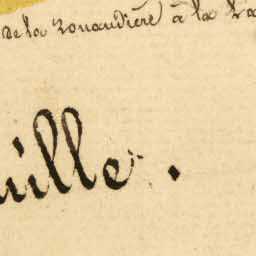 de la Touaudière à la La
uille.